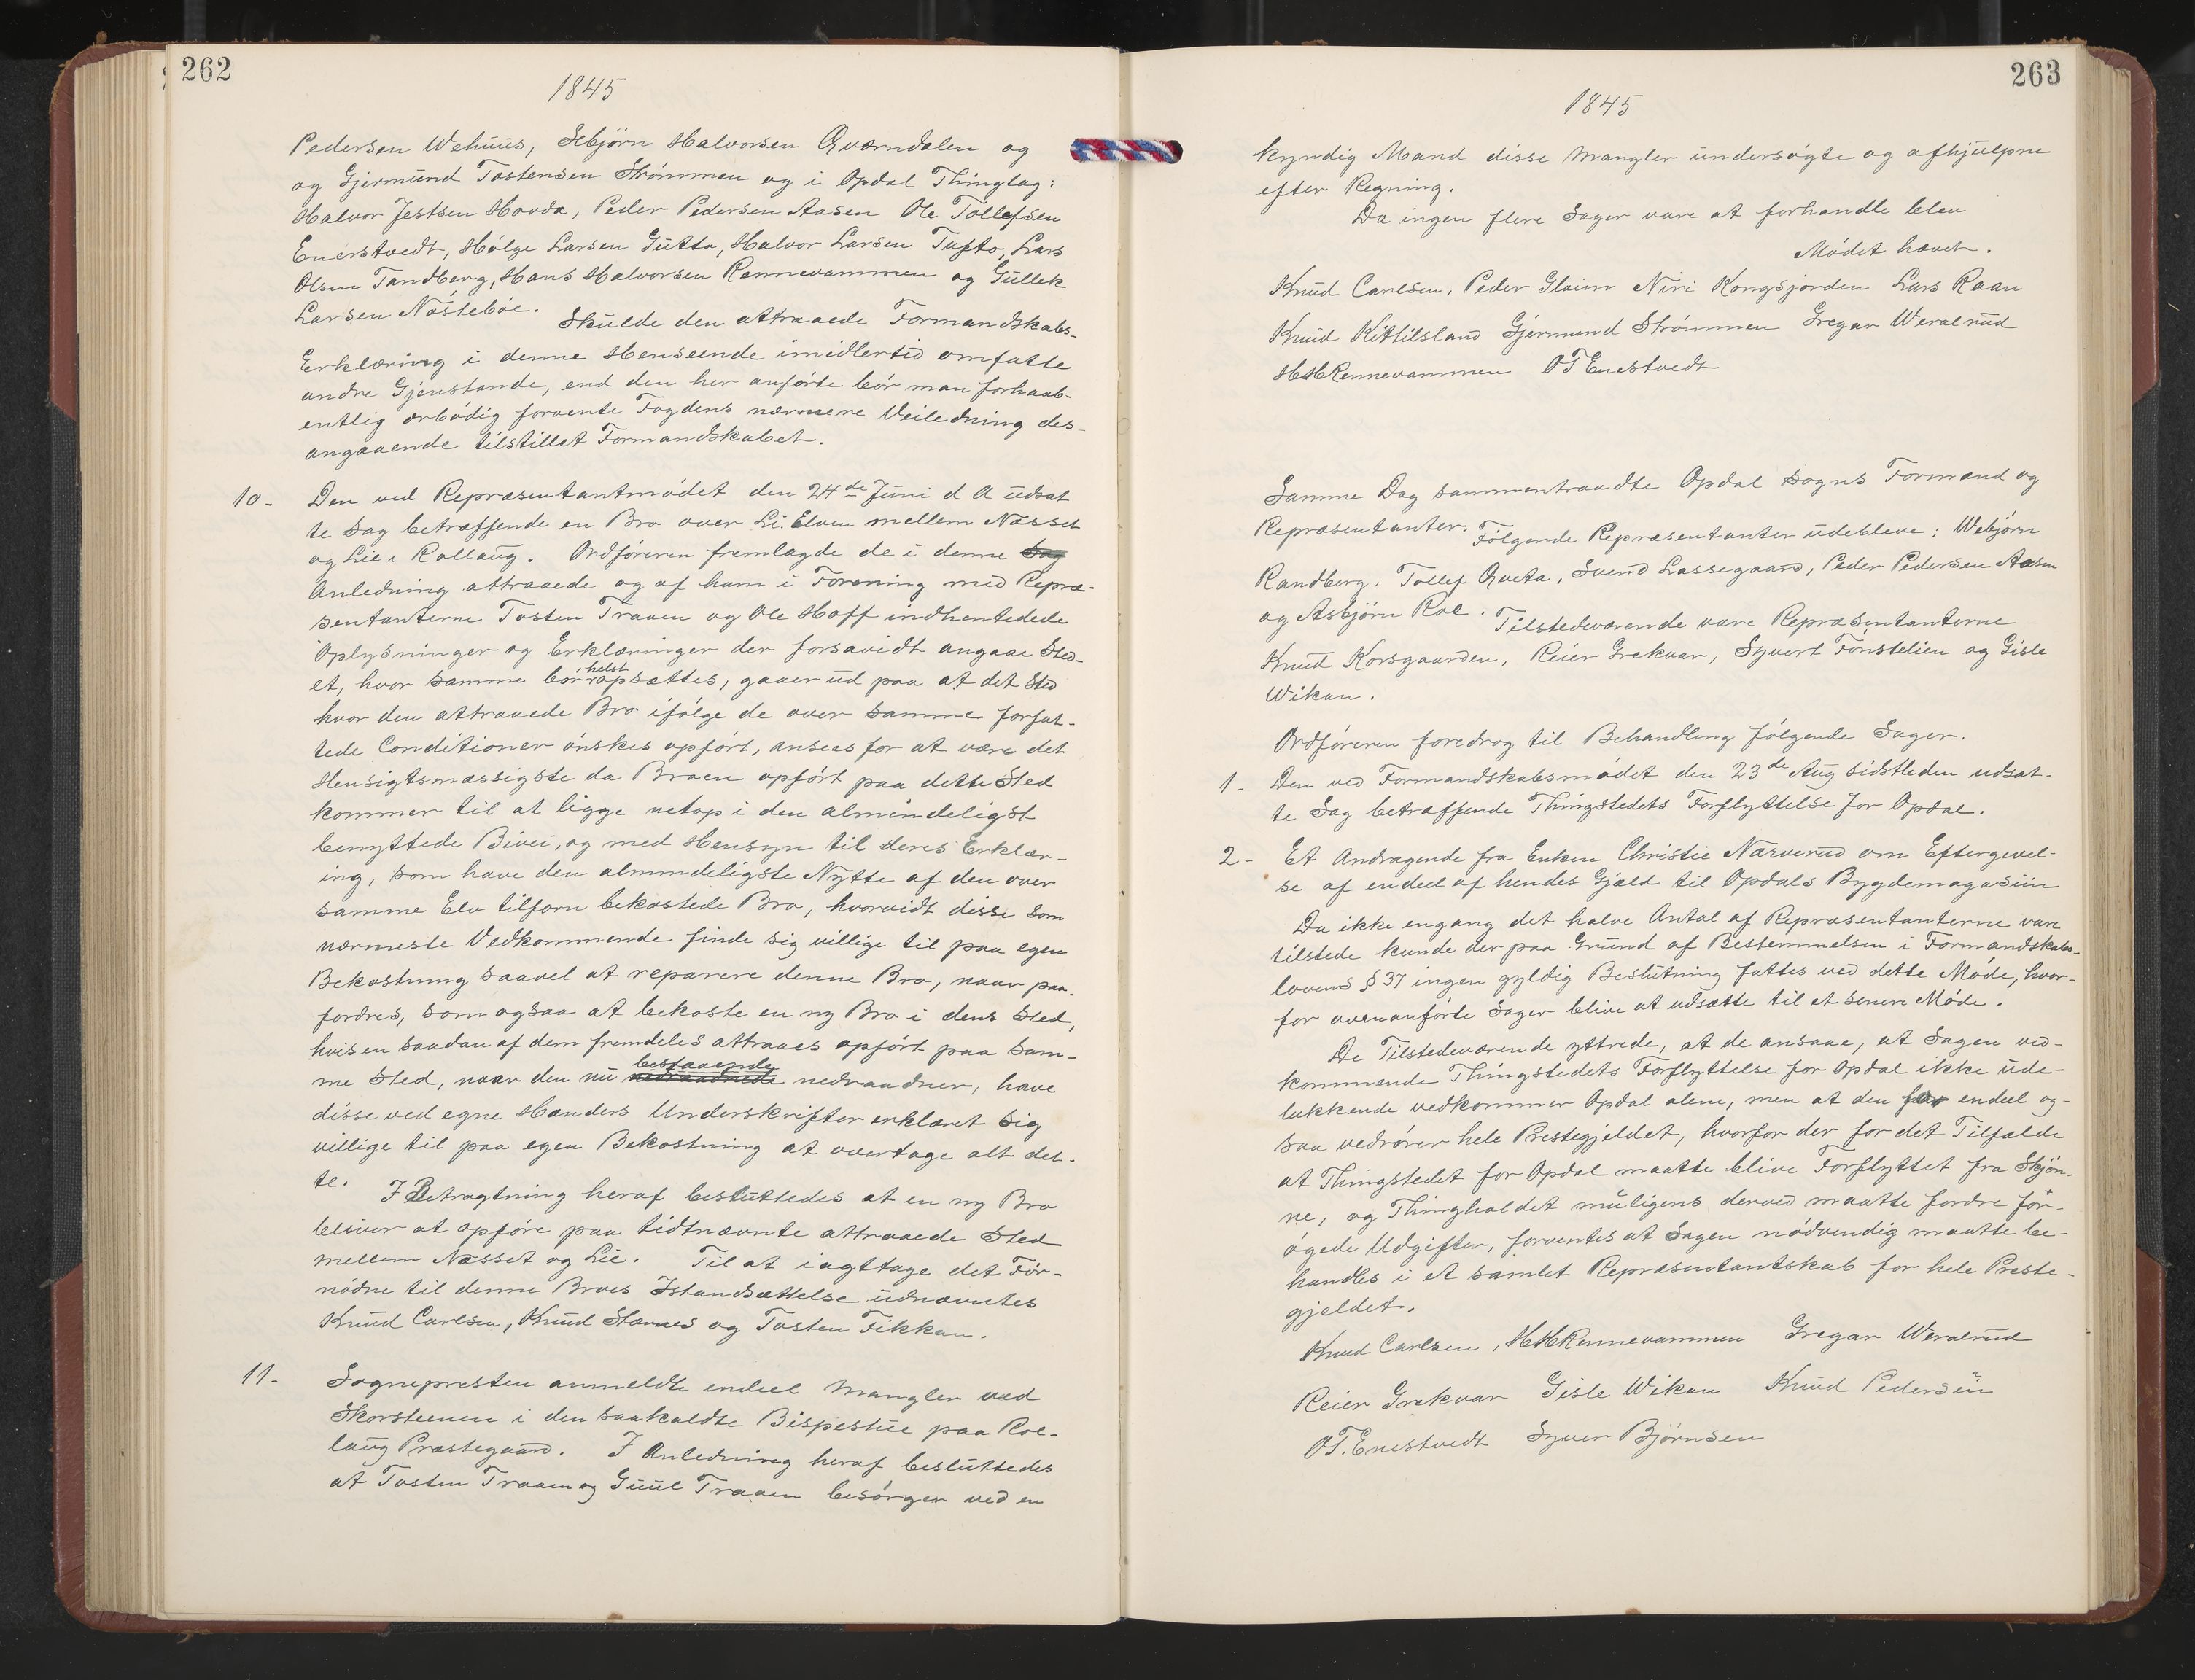 262
1845
Pedersen Wehuus, Asbjörn Halvorsen Qværndalen og
og Gjermund Tostensen Strömmen og i Opdal Thinglag:
Halvor Jestsen Hovda, Peder Pedersen Aasen Ole Tollefsen
Enerstvedt, Hölge Larsen Gutta, Halvor Larsen Tufto, Lars
Olsen Tandberg, Hans Halvorsen Rennevammen og Gullek
Larsen Nöstebøe. Skulde den attraaede Formandskabs-
Erklæring i denne Henseende imidlertid omfatte
andre Gjenstande, end den her anförte bör man forhaab-
entlig ærbödig forvente Fogdens nærmere Veiledning des-
angaaende tilstillet Formandskabet.
10- Den ved Repræsentantmödet den 24de Juni d A udsat
te Sag betræffende en Bro over Li. Elven mellem Næsset
og Lie i Rollaug. Ordföreren fremlagde de i denne Sag
Anledning attraaede og af ham i Forening med Repræ-
sentanterne Tosten Traaen og Ole Hoff indhentedede
Oplysninger og Erklæringer der forsavidt angaae Sted-
et, hvor samme bör helst opsættes, gaaer ud paa at det Sted
hvor den attraaede Bro ifölge de over samme forfat-
tede Conditioner önskes opfört, ansees for at være det
Hensigtsmæssigste da Broen opfört paa dette Sted
kommer til at ligge netop i den almindeligst
benyttede Bivei, og med Hensyn til deres Erklær-
ing, som have den almindeligste Nytte af den over
samme Elv tilforn bekostede Bro, hvorvidt disse som
nærmeste Vedkommende finde sig villige til paa egen
Bekostning saavel at reparere denne Bro, naar paa-
fordres, som ogsaa at bekoste en ny Bro i dens Sted,
hvis en saadan af dem fremdeles attraaes opfört paa sam-
me Sted, naar den nu nedraadnede bestaaende nedraadner, have
disse ved egne Hænders Underskrifter erklæret sig
villige til paa egen Bekostning at overtage alt det-
te. I Betragtning heraf besluttedes at en ny Bro
bliver at opföre paa tidtnævnte attraaede Sted
mellem Næsset og Lie. Til at iagttage det For-
nödne til denne Broes Istandsættelse udnævntes
Knud Carlsen, Knud Stærnes og Tosten Fikkan.
11- Sognepresten anmeldte endeel Mangler ved
Skorsteenen i den saakaldte Bispestue paa Rol-
laug Præstegaard. I Anledning heraf besluttedes
at Tosten Traaen og Guul Traaen besörger ved en
263
1845
kyndig Mand disse Mangler undersögte og afhjulpne
efter Regning.
Da ingen flere Sager vare at forhandle blev
Mödet hævet.
Knud Carlsen, Peder Glaim Niri Kongsjorden Lars Raan
Knud Kittilsland Gjermund Strömmen Gregar Weralrud
HHRennevammen OTEnestvedt
Samme Dag sammentraadte Opdal sogns Formænd og
Repræsentanter. Fölgende Repræsentanter udebleve: Webjörn
Randberg, Tollef Qveta, Svend Lassegaard, Peder Pedersen Aasen
og Asbjörn Roe. Tilstedeværende vare Repræsentanterne
Knud Korsgaarden, Reier Grekvar, Syvert Fönstelien og Gisle
Wikan.
Ordföreren foredrog til Behandling fölgende Sager.
1- Den ved Formandskabsmödet den 23de Aug sidstleden udsat-
te Sag betræffende Thingstedets Forflyttelse for Opdal.
2- Et Andragende fra Enken Christie Nærverud om Eftergivel-
se af endeel af hendes Gjæld til Opdals Bygdemagasiin
Da ikke engang det halve Antal af Repræsentanterne vare
tilstede kunde der paa Grund af Bestemmelsen i Formandskabs-
lovens § 37 ingen gyldig Beslutning fattes ved dette Möde, hvor-
for ovenanförte Sager blive at udsætte til et senere Möde.
De Tilstedeværende yttrede, at de ansaae, at Sagen ved-
kommende Thingstedets Forflyttelse for Opdal ikke ude-
lukkende vedkommer Opdal alene, men at den for endeel og-
saa vedrörer hele Prestegjeldet, hvorfor der for det Tilfælde
at Thingstedet for Opdal maatte blive Forflyttet fra Skjön-
ne, og Thingholdet muligens derved maatte fordre for-
ögede Udgifter, forventes at Sagen nödvendig maatte be-
handles i et samlet Repræsentantskab for hele Preste-
gjeldet.
Knud Carlsen, HHRennevammen Gregar Weralrud
Reier Grekvar Gisle Wikan Knud Pedersen
OT. Enestvedt Syver Björnsen